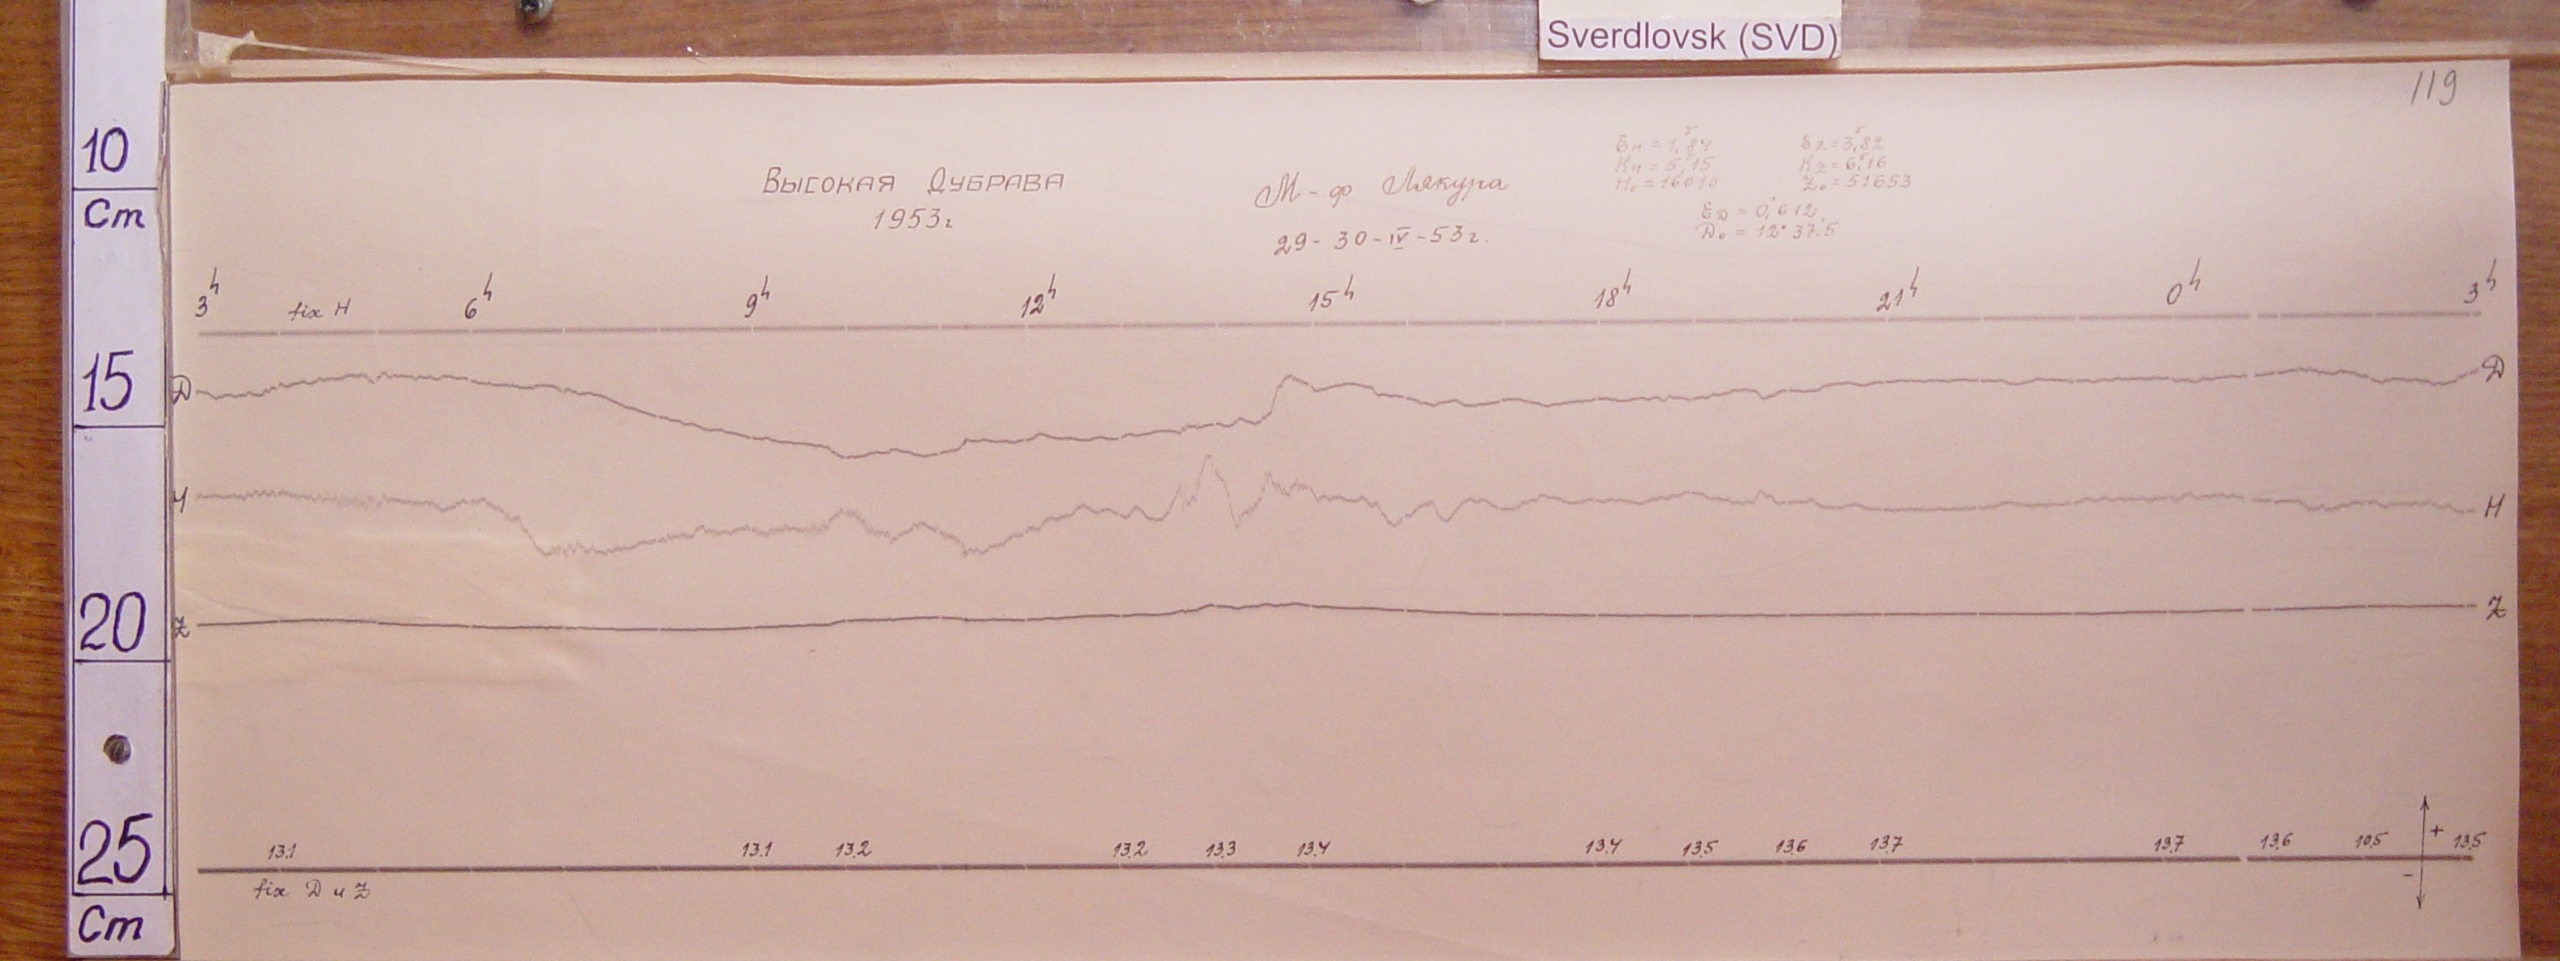 Sverdlovsk (SVD)
119
10
Cm
15
20
25
Cm
Высокая Дубрава
1953г
М-ф Лякура
29-30-IV-53г.
Eн = 1,84
Kн = 5,15
H₀ = 16010
Ez = 3,82
Kz = 6,16
Z₀ = 51653
E_D = 0,612
D₀ = 12° 37.5
3h fix H 6h 9h 12h 15h 18h 21h 0h 3h
D D
H H
Z Z
13.1 13.1 13.2 13.2 13.3 13.4 13.4 13.5 13.6 13.7 13.7 13.6 10.5 13.5
+
-
fix D и Z